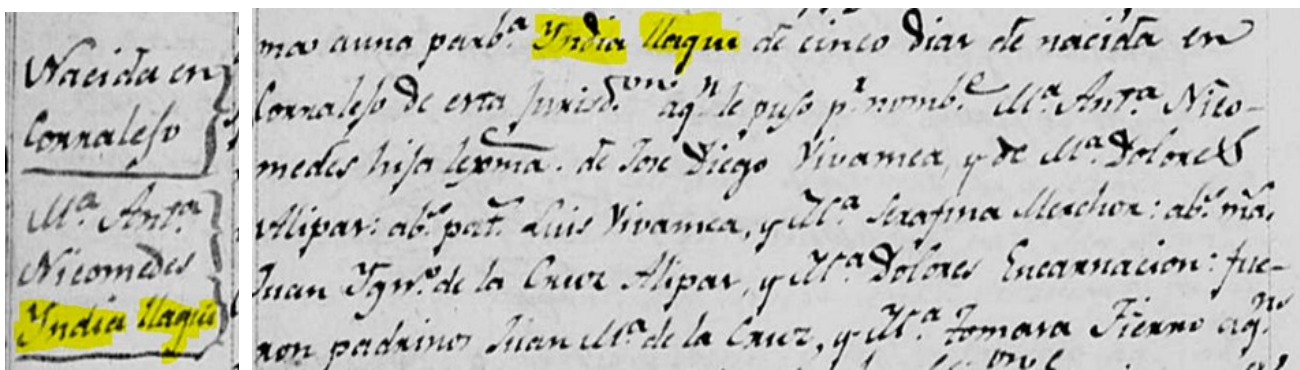 Nacida en
Corralejo
Ma. Anta.
Nicomedes
Yndia Yaqui
mas a una parba. Yndia Yaqui de cinco dias de nacida en
Corralejo de esta Jurisdon. aqn le puso pr nombe. Ma. Anta Nico-
medes hija legma. de Jose Diego Vivamea, y de Ma. Dolores
Alipas: abs. pats. Luis Vivamea, y Ma Serafina Melchor: abs. mas.
Juan Ygno. de la Cruz Alipas, y Ma Dolores Encarnacion: fue-
ron padrinos Juan Ma. de la Cruz, y Ma. Tomasa Fierro aqns